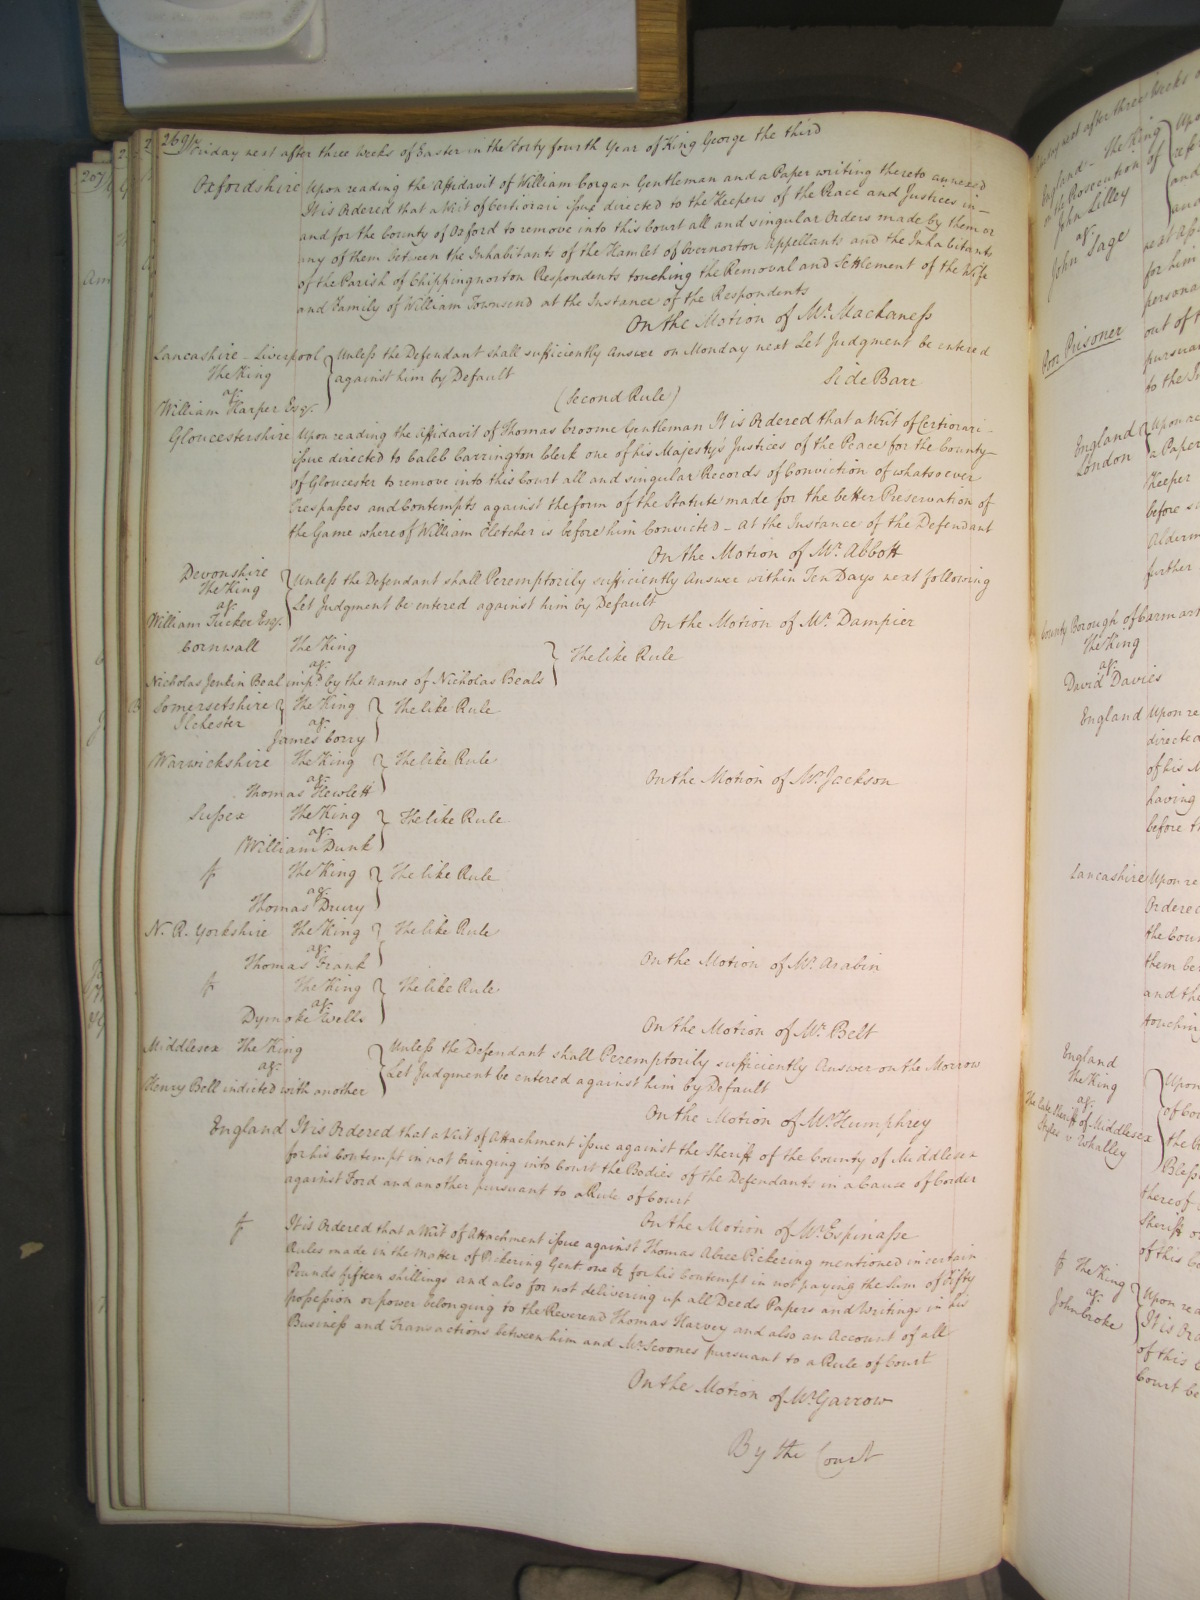 269
Friday next after three Weeks of Easter in the Forty fourth Year of King George the third
Oxfordshire Upon reading the Affidavit of William Corgan Gentleman and a Paper writing thereto annexed
It is Ordered that a Writ of Certiorari issue directed to the Keepers of the Peace and Justices in
and for the County of Oxford to remove into this Court all and singular Orders made by them or
any of them between the Inhabitants of the Hamlet of Overnorton Appellants and the Inhabitants
of the Parish of Chippingnorton Respondents touching the Removal and Settlement of the Wife
and Family of William Townsend at the Instance of the Respondents
On the Motion of Mr. Mackaness
Lancashire - Liverpool Unless the Defendant shall sufficiently Answer on Monday next Let Judgment be entered
The King against him by Default
agt. Side Barr
William Harper Esqr. (Second Rule)
Gloucestershire Upon reading the Affidavit of Thomas Croome Gentleman It is Ordered that a Writ of Certiorari
issue directed to Caleb Carrington Clerk one of his Majesty's Justices of the Peace for the County
of Gloucester to remove into this Court all and singular Records of Conviction of whatsoever
Trespasses and Contempts against the form of the Statute made for the better Preservation of
the Game where of William Fletcher is before him Convicted - At the Instance of the Defendant
On the Motion of Mr. Abbott
Devonshire Unless the Defendant shall Peremptorily sufficiently Answer within Ten Days next following
The King
agt. Let Judgment be entered against him by Default
William Tucker Esqr. On the Motion of Mr. Dampier
Cornwall The King
agt. The like Rule
Nicholas Jenkin Beal impd. by the name of Nicholas Beals
Somersetshire The King The like Rule
Ilchester agt.
James Corry
Warwickshire The King The like Rule
agt. On the Motion of Mr. Jackson
Thomas Hewlett
Sussex The King The like Rule
agt.
William Dunk
The King The like Rule
agt.
Thomas Drury
N. R. Yorkshire The King The like Rule
agt.
Thomas Frank On the Motion of Mr. Arabin
The King The like Rule
agt.
Dymoke Wells On the Motion of Mr. Belt
Middlesex The King Unless the Defendant shall Peremptorily sufficiently Answer on the Morrow
agt. Let Judgment be entered against him by Default
Henry Bell indicted with another
On the Motion of Mr. Humphrey
England It is Ordered that a Writ of Attachment issue against the Sheriff of the County of Middlesex
for his Contempt in not bringing into Court the Bodies of the Defendants in a Cause of Corder
against Ford and another pursuant to a Rule of Court
On the Motion of Mr. Espinasse
It is Ordered that a Writ of Attachment issue against Thomas Abree Pickering mentioned in certain
Rules made in the Matter of Pickering Gent one &c for his Contempt in not paying the Sum of Fifty
Pounds fifteen shillings and also for not delivering up all Deeds Papers and Writings in his
possession or power belonging to the Reverend Thomas Harvey and also an Account of all
Business and Transactions between him and Mr. Scoones pursuant to a Rule of Court
On the Motion of Mr. Garrow
By the Court
next after three Weeks
England - The King
on the Prosecution of
John Lilley
agt.
John Sage
Poor Prisoner
England
London
County Borough of Carmar
The King
agt.
David Davies
England Upon re
directed
of his M
having
before th
Lancashire Upon re
Ordered
the Cour
them be
and the
touchin
England
The King
agt.
The late Sheriff of Middlesex
v Whalley
The King
agt.
John Croke